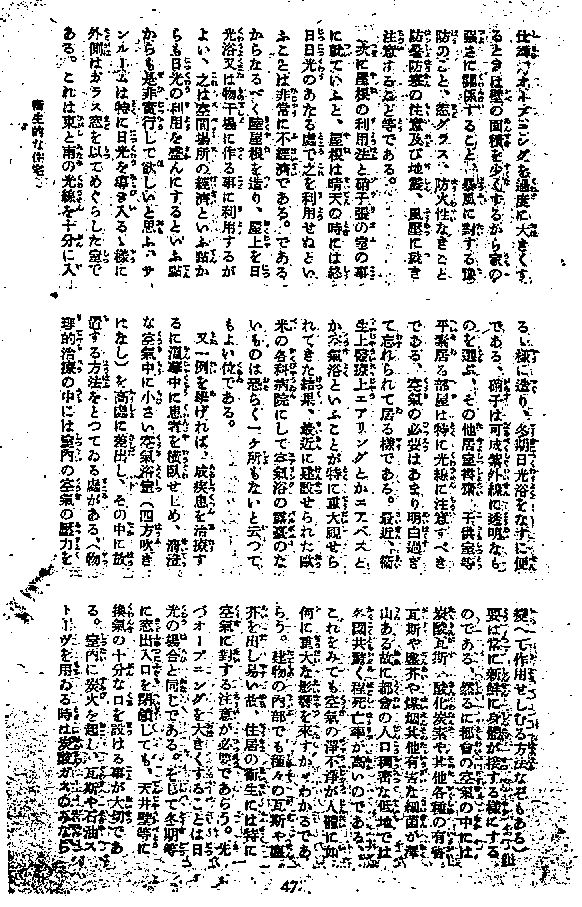 仕澤山オオプニングを過度に大きくす
るときは壁の面積を少くするから家の
強さに關係すること、暴風に對する豫
防のこと、窓グラス、防火性なきこと
防暑防寒の注意及び地震、風壓に就き
注意すること等である。
次に屋根の利用法と硝子張の室の事
に就ていふと、屋根は晴天の時には終
日日光のあたる處で之を利用せぬとい
ふことは非常に不經濟である。である
からなるべく陸屋根を造り、屋上を日
光浴又は物干場に作る事に利用するが
よい、之は空間場所の經濟といふ點か
らも日光の利用を盛んにするといふ點
からも是非實行して欲しいと思ふ、サ
ンルームは特に日光を導き入るゝ樣に
外側はガラス窓を以てめぐらした室で
ある。これは東と南の光線を十分に入
衞生的な住宅
るゝ樣に造り、冬期日光浴をなすに便
である、硝子は可成紫外線に透明なも
のを選ぶ、その他居室書齋、子供室等
平素居る部屋は特に光線に注意すべき
である、空氣の必要はあまり明白過ぎ
て忘れられて居る樣である。最近、衞
生上醫療上エアリングとかエアバスと
か空氣浴といふことが特に重大視せら
れてきた結果、最近に建設せられた歐
米の各科病院にして空氣浴の露臺のな
いものは恐らく一ヶ所もないと云つて
もよい位である。
又一例を擧げれば、或疾患を治療す
るに溫室中に患者を橫臥せしめ、淸澄
な空氣中に小さい空氣浴室(四方吹き
はなし)を高處に差出し、その中に放
置する方法をとつてゐる處がある、物
理的治療の中には室內の空氣の壓力を
變へて作用せしむる方法などもある、
要は常に新鮮に身體が接する樣にする
のである、然るに都會の空氣の中には
炭酸瓦斯、酸化炭素や其他各種の有害
瓦斯や塵芥や煤烟其他有害な細菌が澤
山ある故に都會の人口稠密な低地では
各國共驚く程死亡率が高いのである、
これをみても空氣の淨不淨が人體に如
何に重大な影響を來すかゞわかるであ
らう。建物の內部でも種々の瓦斯や塵
芥を出し易い故、住居の衞生には特に
空氣に對する注意が必要であらう。先
づオープニングを大きくすることは日
光の場合と同じである。そして冬期等
に窓出入口を閉鎖しても、天井壁等に
換氣の十分な口を設ける事が大切であ
る。室內に炭火を起し、瓦斯や石油ス
トーヴを用ゐる時は炭酸ガスのみなら
47